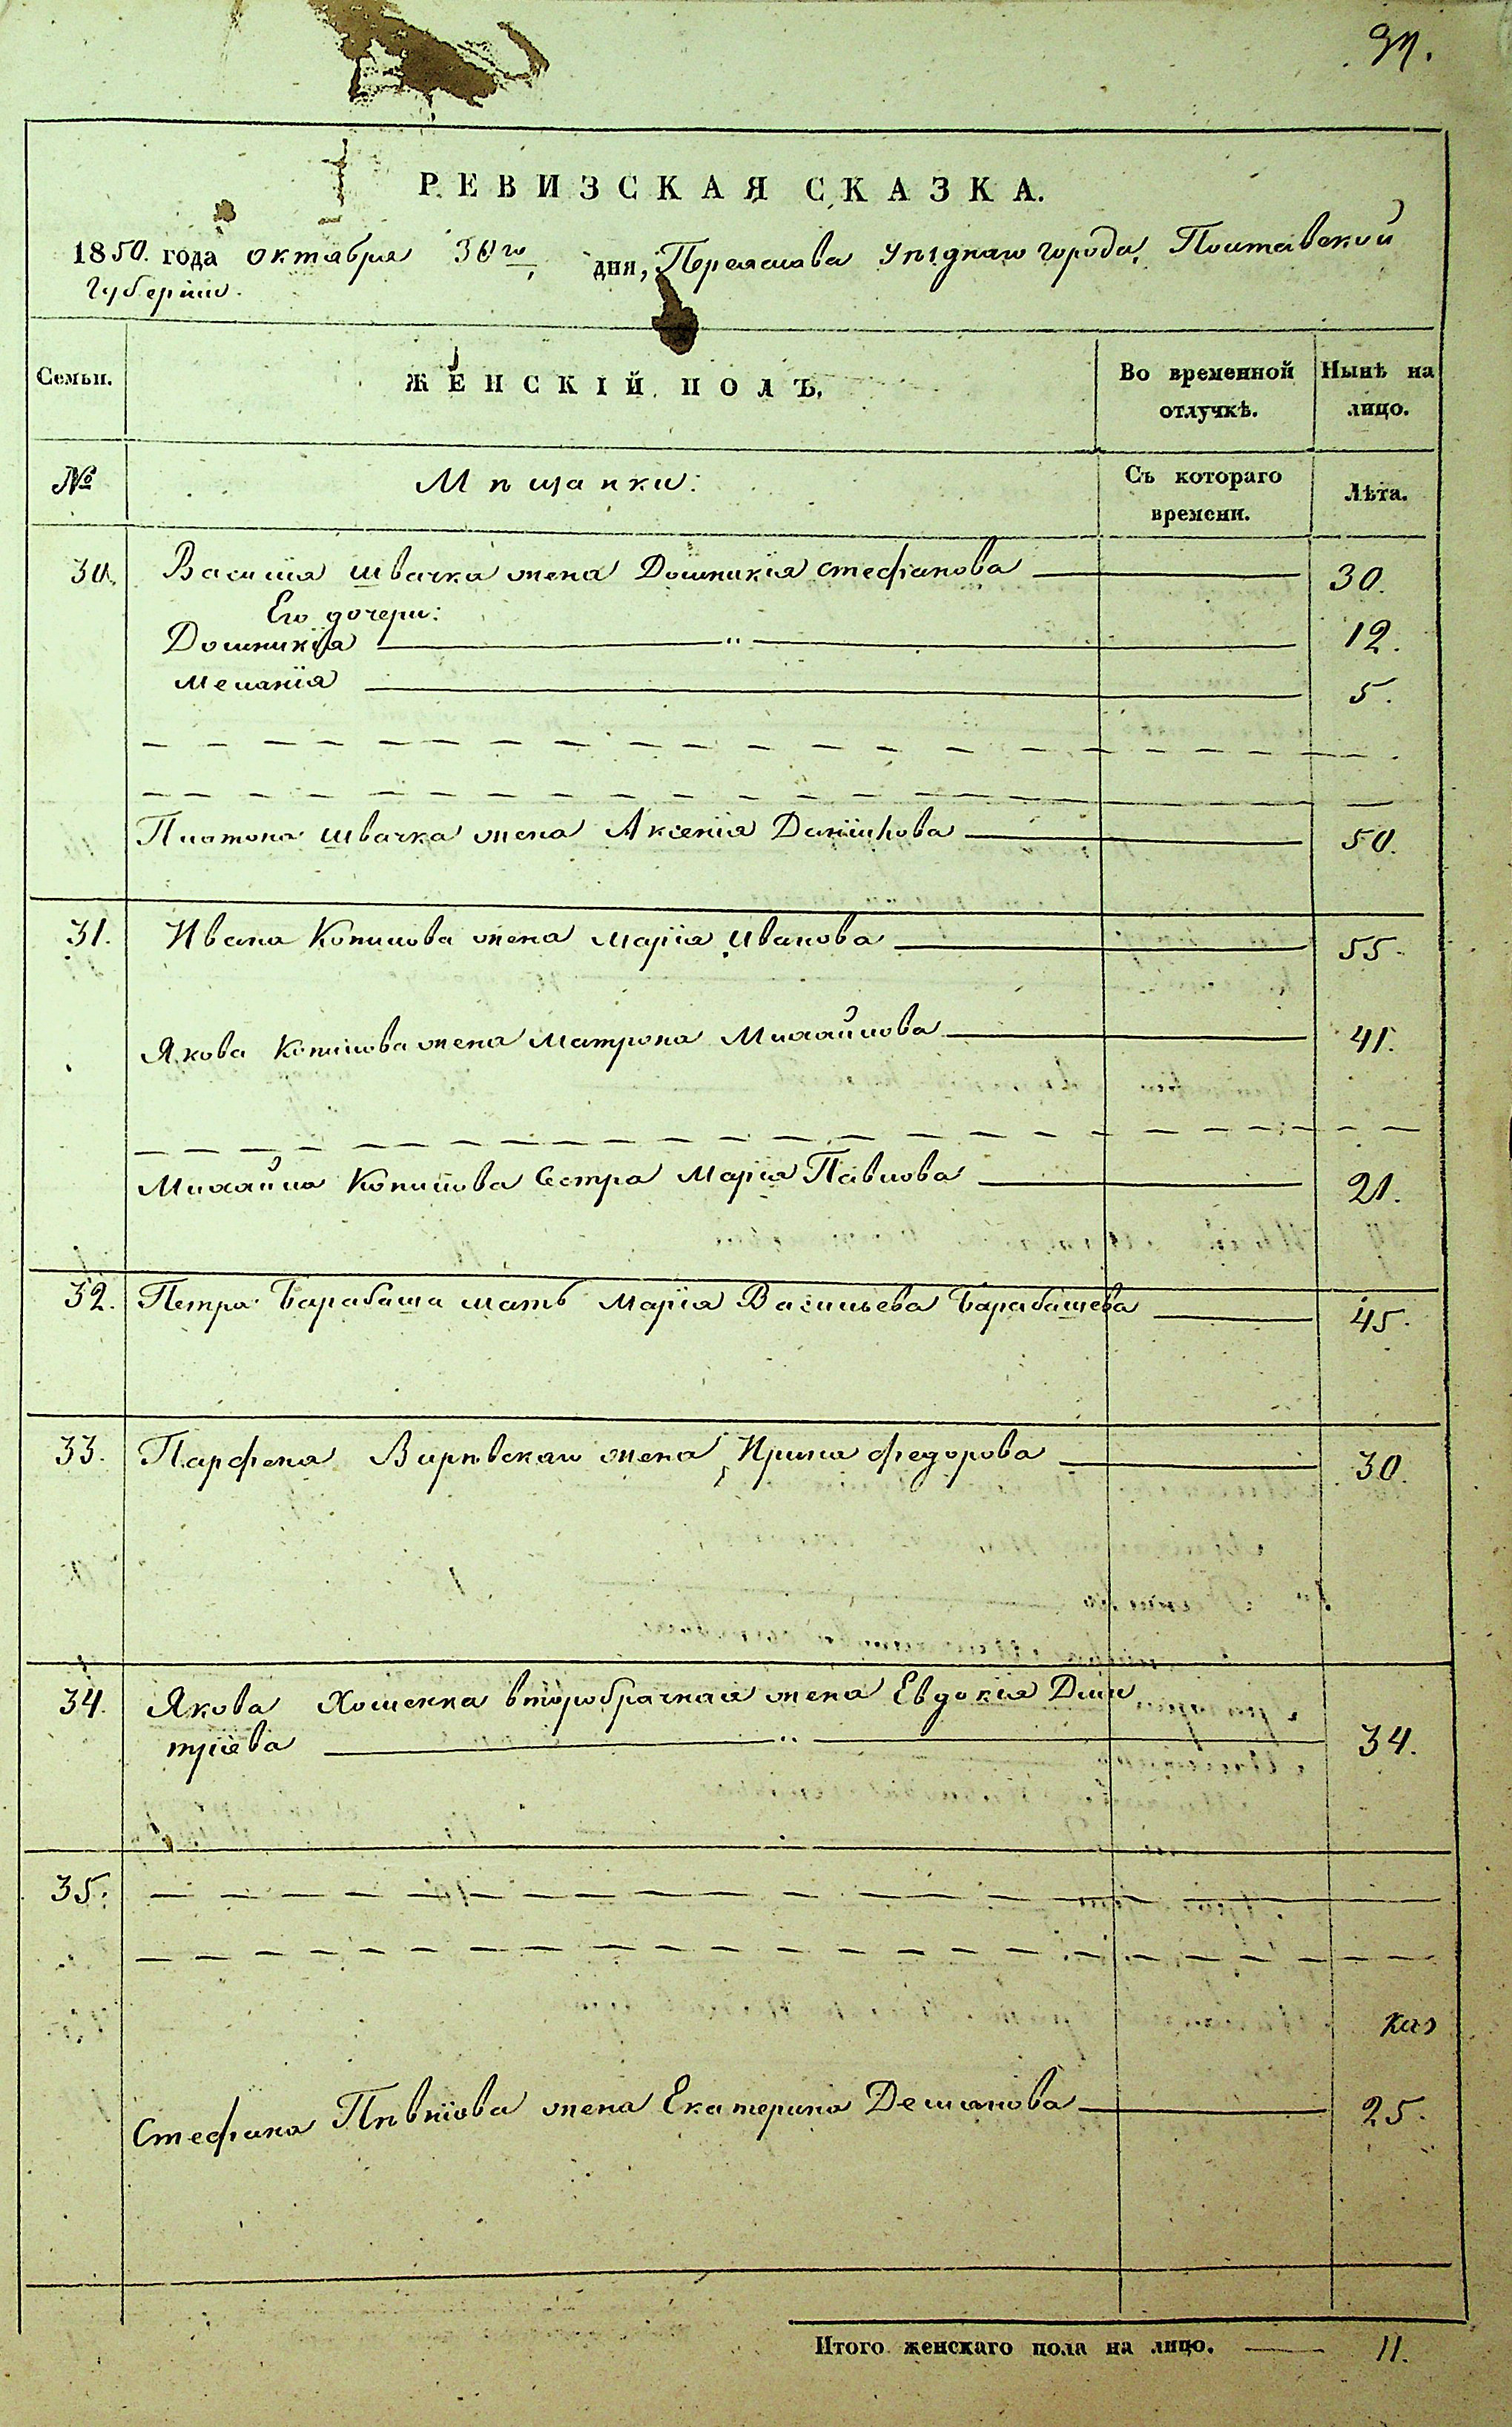 37.
РЕВИЗСКАЯ СКАЗКА.
1850. года октября 30го дня, Переяслава Уѣзднаго города, Полтавской
Губерніи.
Семьи.
ЖЕНСКІЙ ПОЛЪ.
Во временной
отлучкѣ.
Нынѣ на
лицо.
№
Мѣщанки:
Съ котораго
времени.
Лѣта.
30. Василія Швачка жена Домникія Стефанова 30.
Его дочери:
Домникія " 12.
Меланія 5.
Платона Швачка жена Аксенія Даніилова 50.
31. Ивана Копилова жена Марія Иванова 55.
Якова Копилова жена Матрона Михайлова 41.
Михайла Копилова Сестра Марія Павлова 21.
32. Петра Барабаша мать Марія Васильева Барабашева 45.
33. Парфена Вирѣвскаго жена Ирина Федорова 30.
34. Якова Хоменка второбрачная жена Евдокія Дми
тріева " 34.
35.
Стефана Пѣвнюва жена Екатерина Деманова 25.
Итого женскаго пола на лицо. 11.